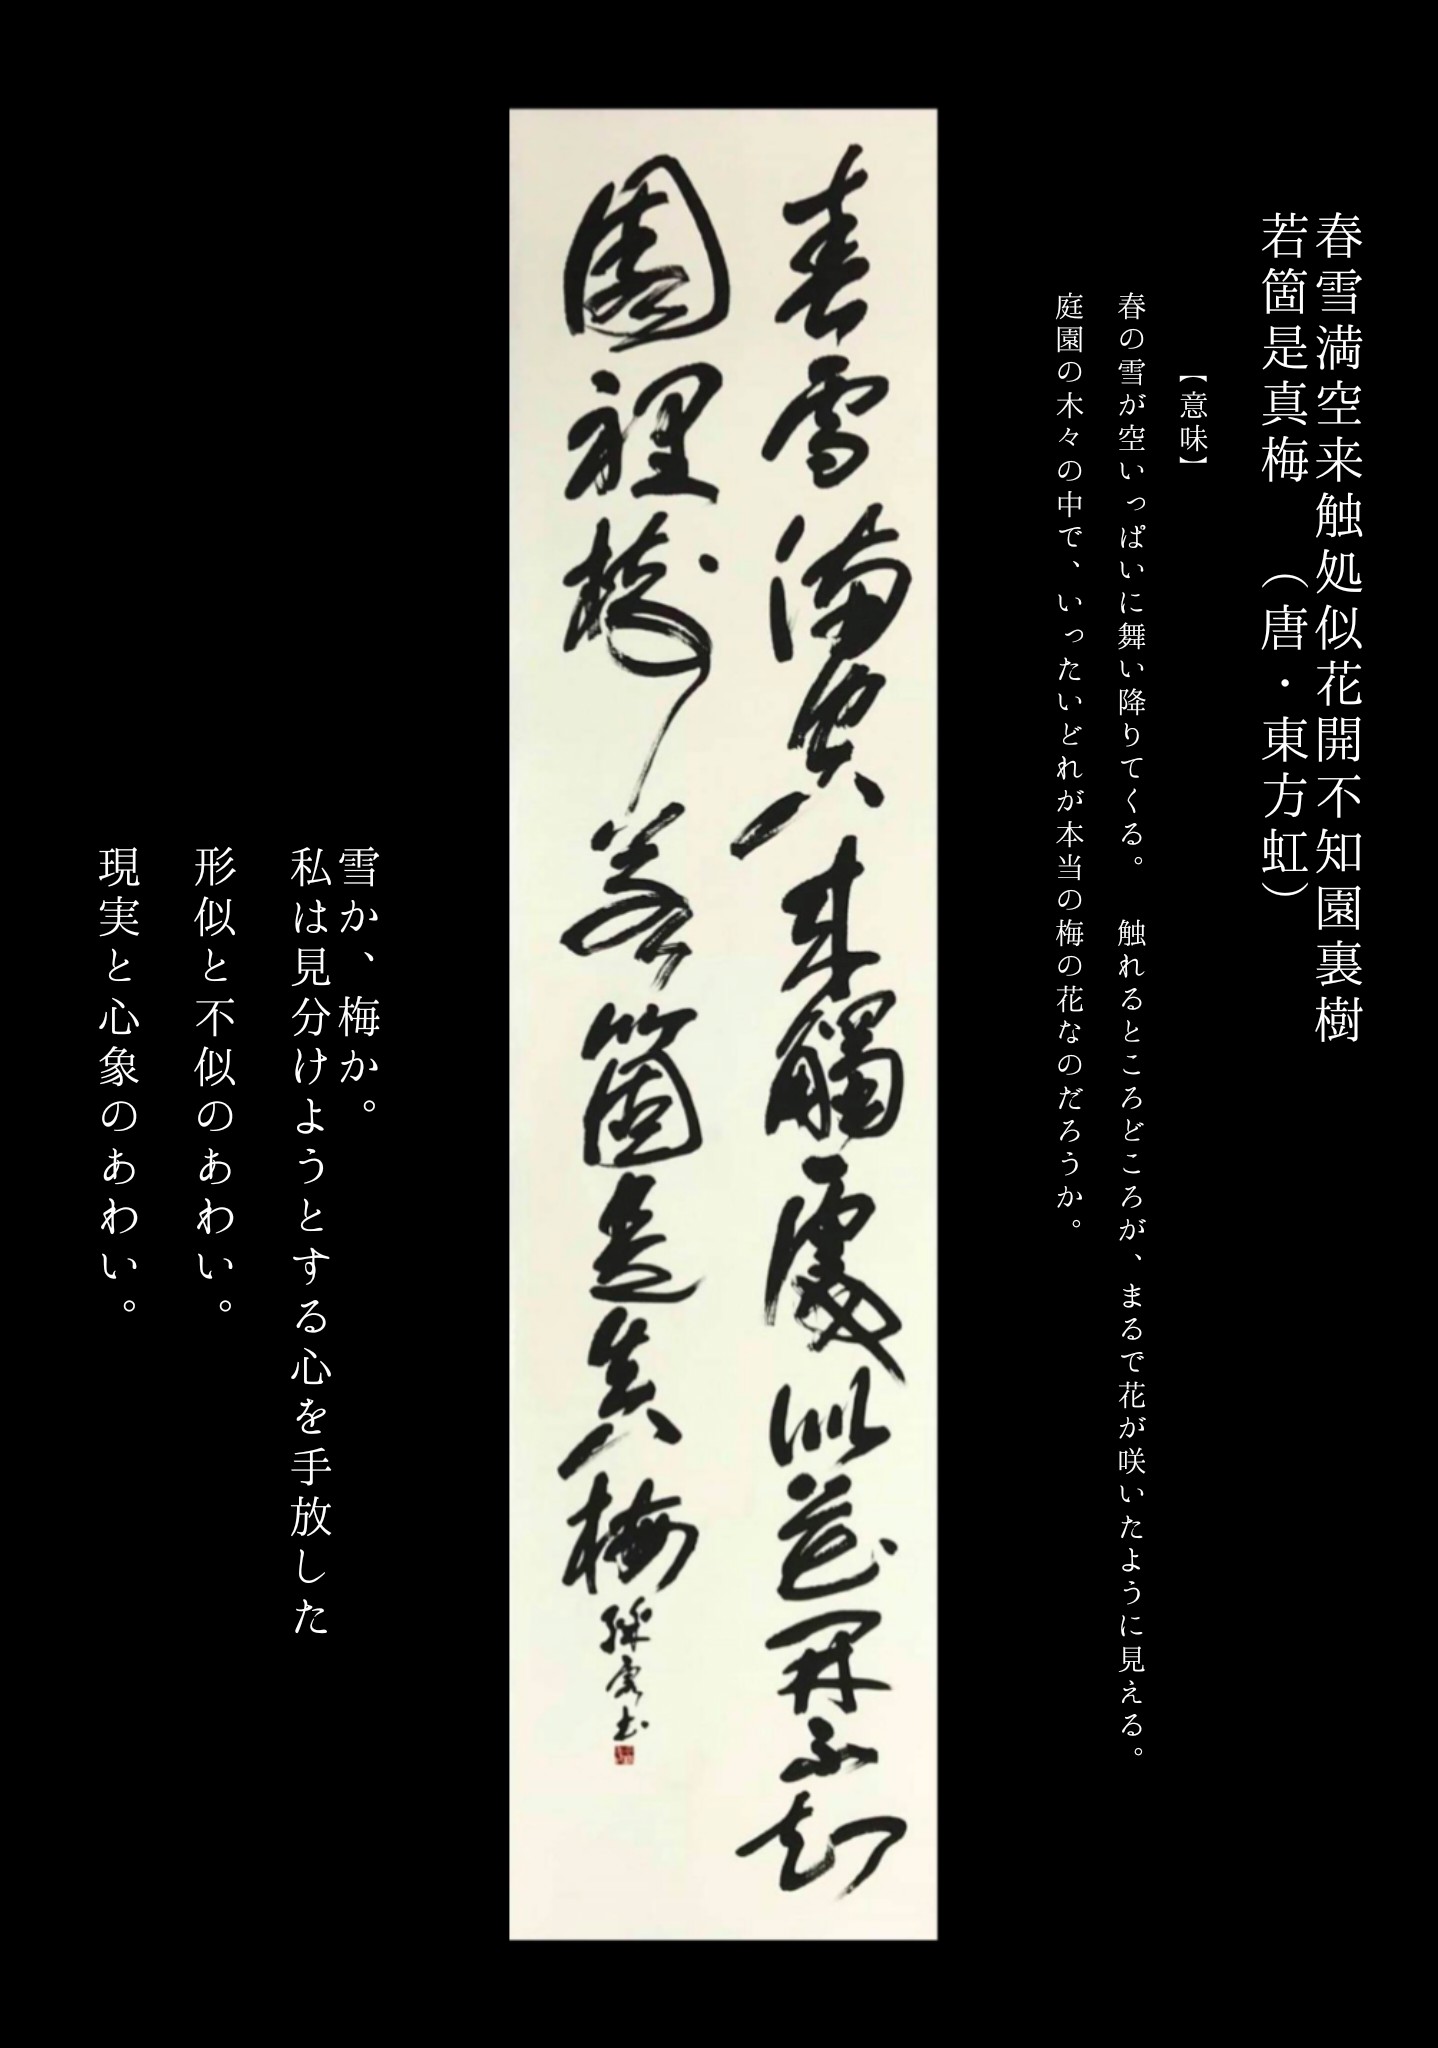 春雪満空来触処似花開不知園裏樹
若箇是真梅　（唐・東方虹）
【意味】
春の雪が空いっぱいに舞い降りてくる。　触れるところどころが、まるで花が咲いたように見える。
庭園の木々の中で、いったいどれが本当の梅の花なのだろうか。
春雪滿空来觸處似花開不知
園裡樹若箇是真梅
雪か、梅か。
私は見分けようとする心を手放した
形似と不似のあわい。
現実と心象のあわい。